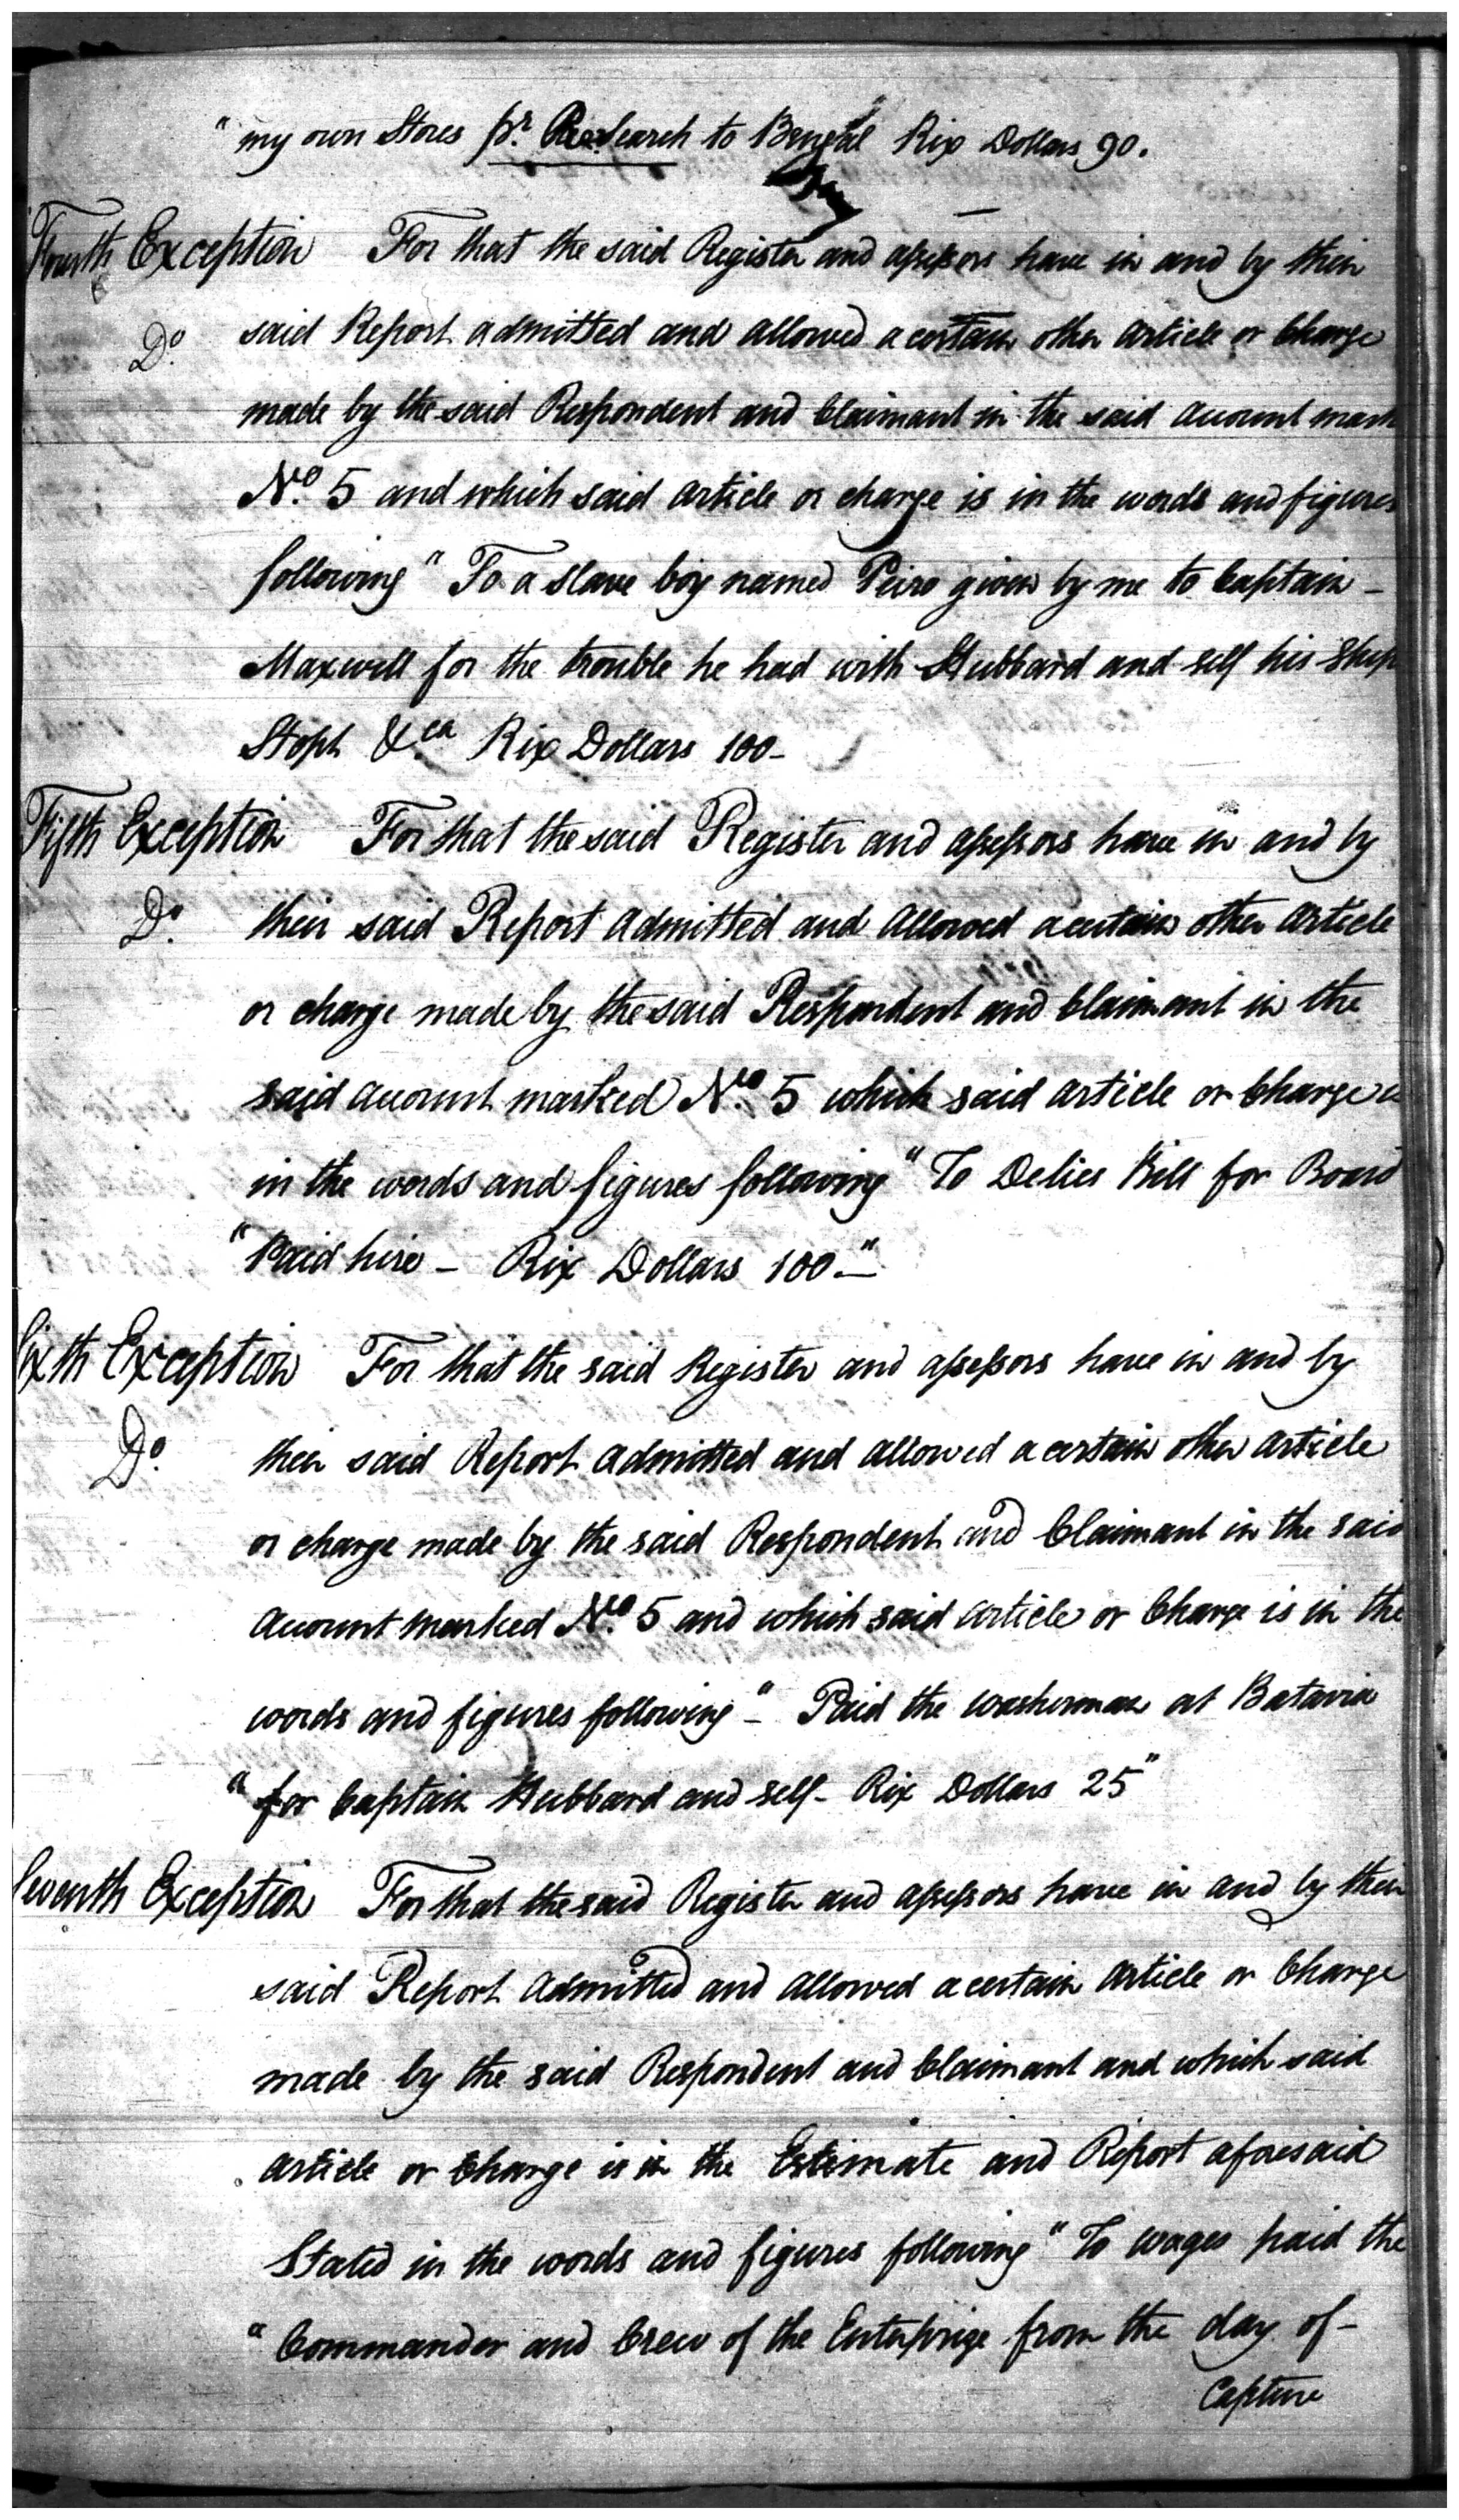 "my own Stores pr. Research to Bengal" Rix Dollars 90.
Fourth Exception For that the said Register and assessors have in and by their
Do. said Report admitted and allowed a certain other article or Charge
made by the said Respondent and Claimant in the said account mark
No. 5 and which said article or charge is in the words and figures
following "To a slave boy named Peiro given by me to Captain -
Maxwell for the trouble he had with Hubbard and self his Ship
Stopt &ca Rix Dollars 100-
Fifth Exception For that the said Register and assessors have in and by
Do. their said Report admitted and allowed a certain other article
or charge made by the said Respondent and Claimant in the
said account marked No. 5 which said article or Charge is
in the words and figures following "To Delies Bill for Board
"Paid hire - Rix Dollars 100-"
Sixth Exception For that the said Register and assessors have in and by
Do. their said Report admitted and allowed a certain other article
or charge made by the said Respondent and Claimant in the said
account marked No. 5 and which said article or Charge is in the
words and figures following "- Paid the washerman at Batavia
"for Captain Hubbard and self- Rix Dollars 25"
Seventh Exception For that the said Register and assessors have in and by their
said Report admitted and allowed a certain article or Charge
made by the said Respondent and Claimant and which said
article or Charge is in the Estimate and Report aforesaid
Stated in the words and figures following "To wages paid the
"Commander and Crew of the Enterprize from the day of -
Capture